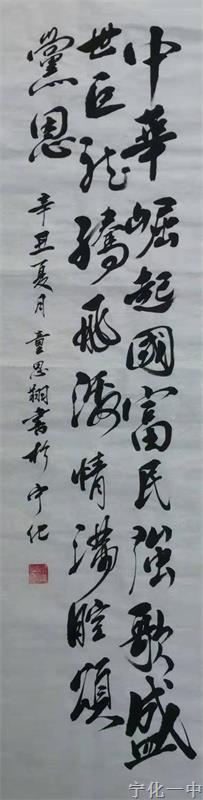 中華崛起國富民强歌盛
世巨龙騰飛情滿腔頌
黨恩
辛丑夏月童恩翔書於宁化
宁化一中